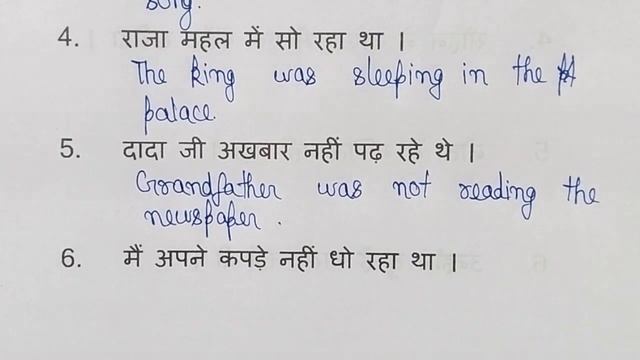 song.
4. राजा महल में सो रहा था ।
The king was sleeping in the
palace.
5. दादा जी अखबार नहीं पढ़ रहे थे ।
Grandfather was not reading the
newspaper.
6. मैं अपने कपड़े नहीं धो रहा था ।